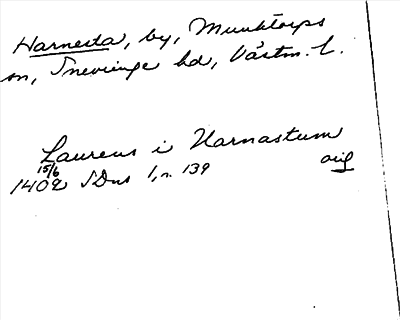 Harnesta, by, Munktorps
sn, Snevringe hd, Västm. l.
Laurens i Harnastum
15/6
1402 SDns 1, n. 139 orig